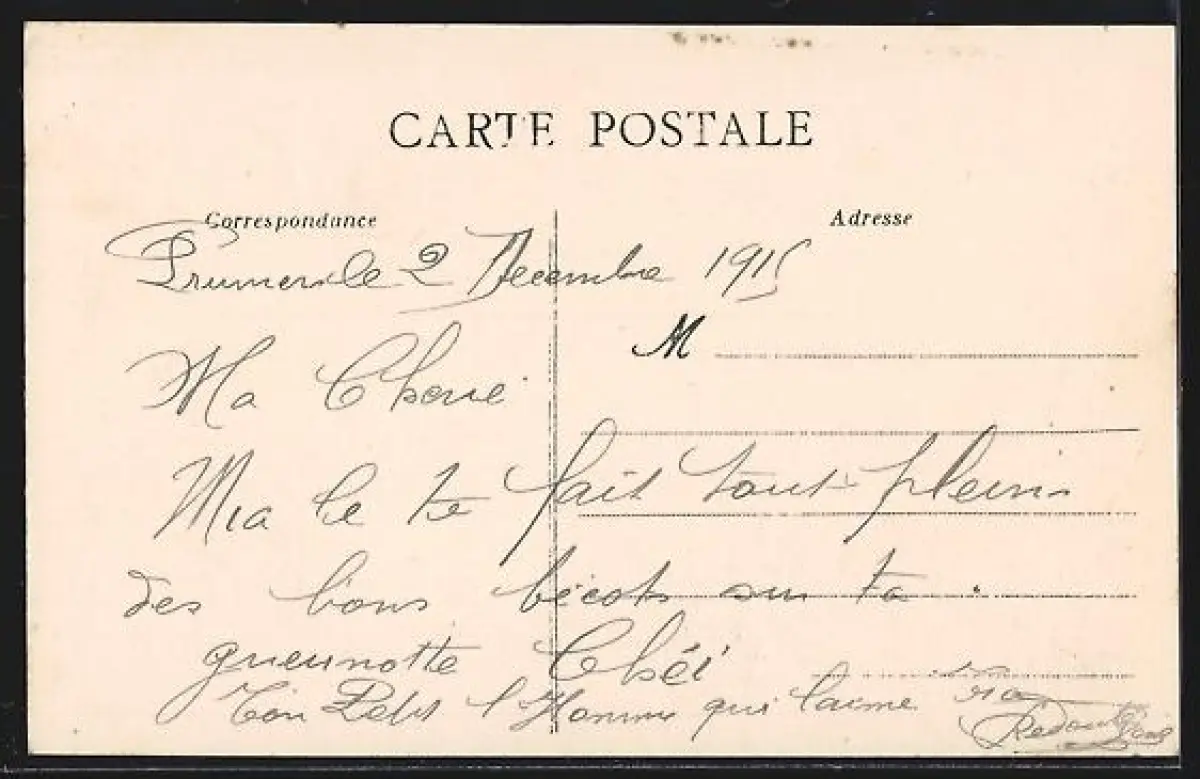 CARTE POSTALE
Correspondance
Adresse
le 2 Decembre 1915
M
Ma Cherie
Mia le te fait tout plein
des bons bécots sur ta
gueunotte Chéi
Ton Petit l'Homme qui t'aime